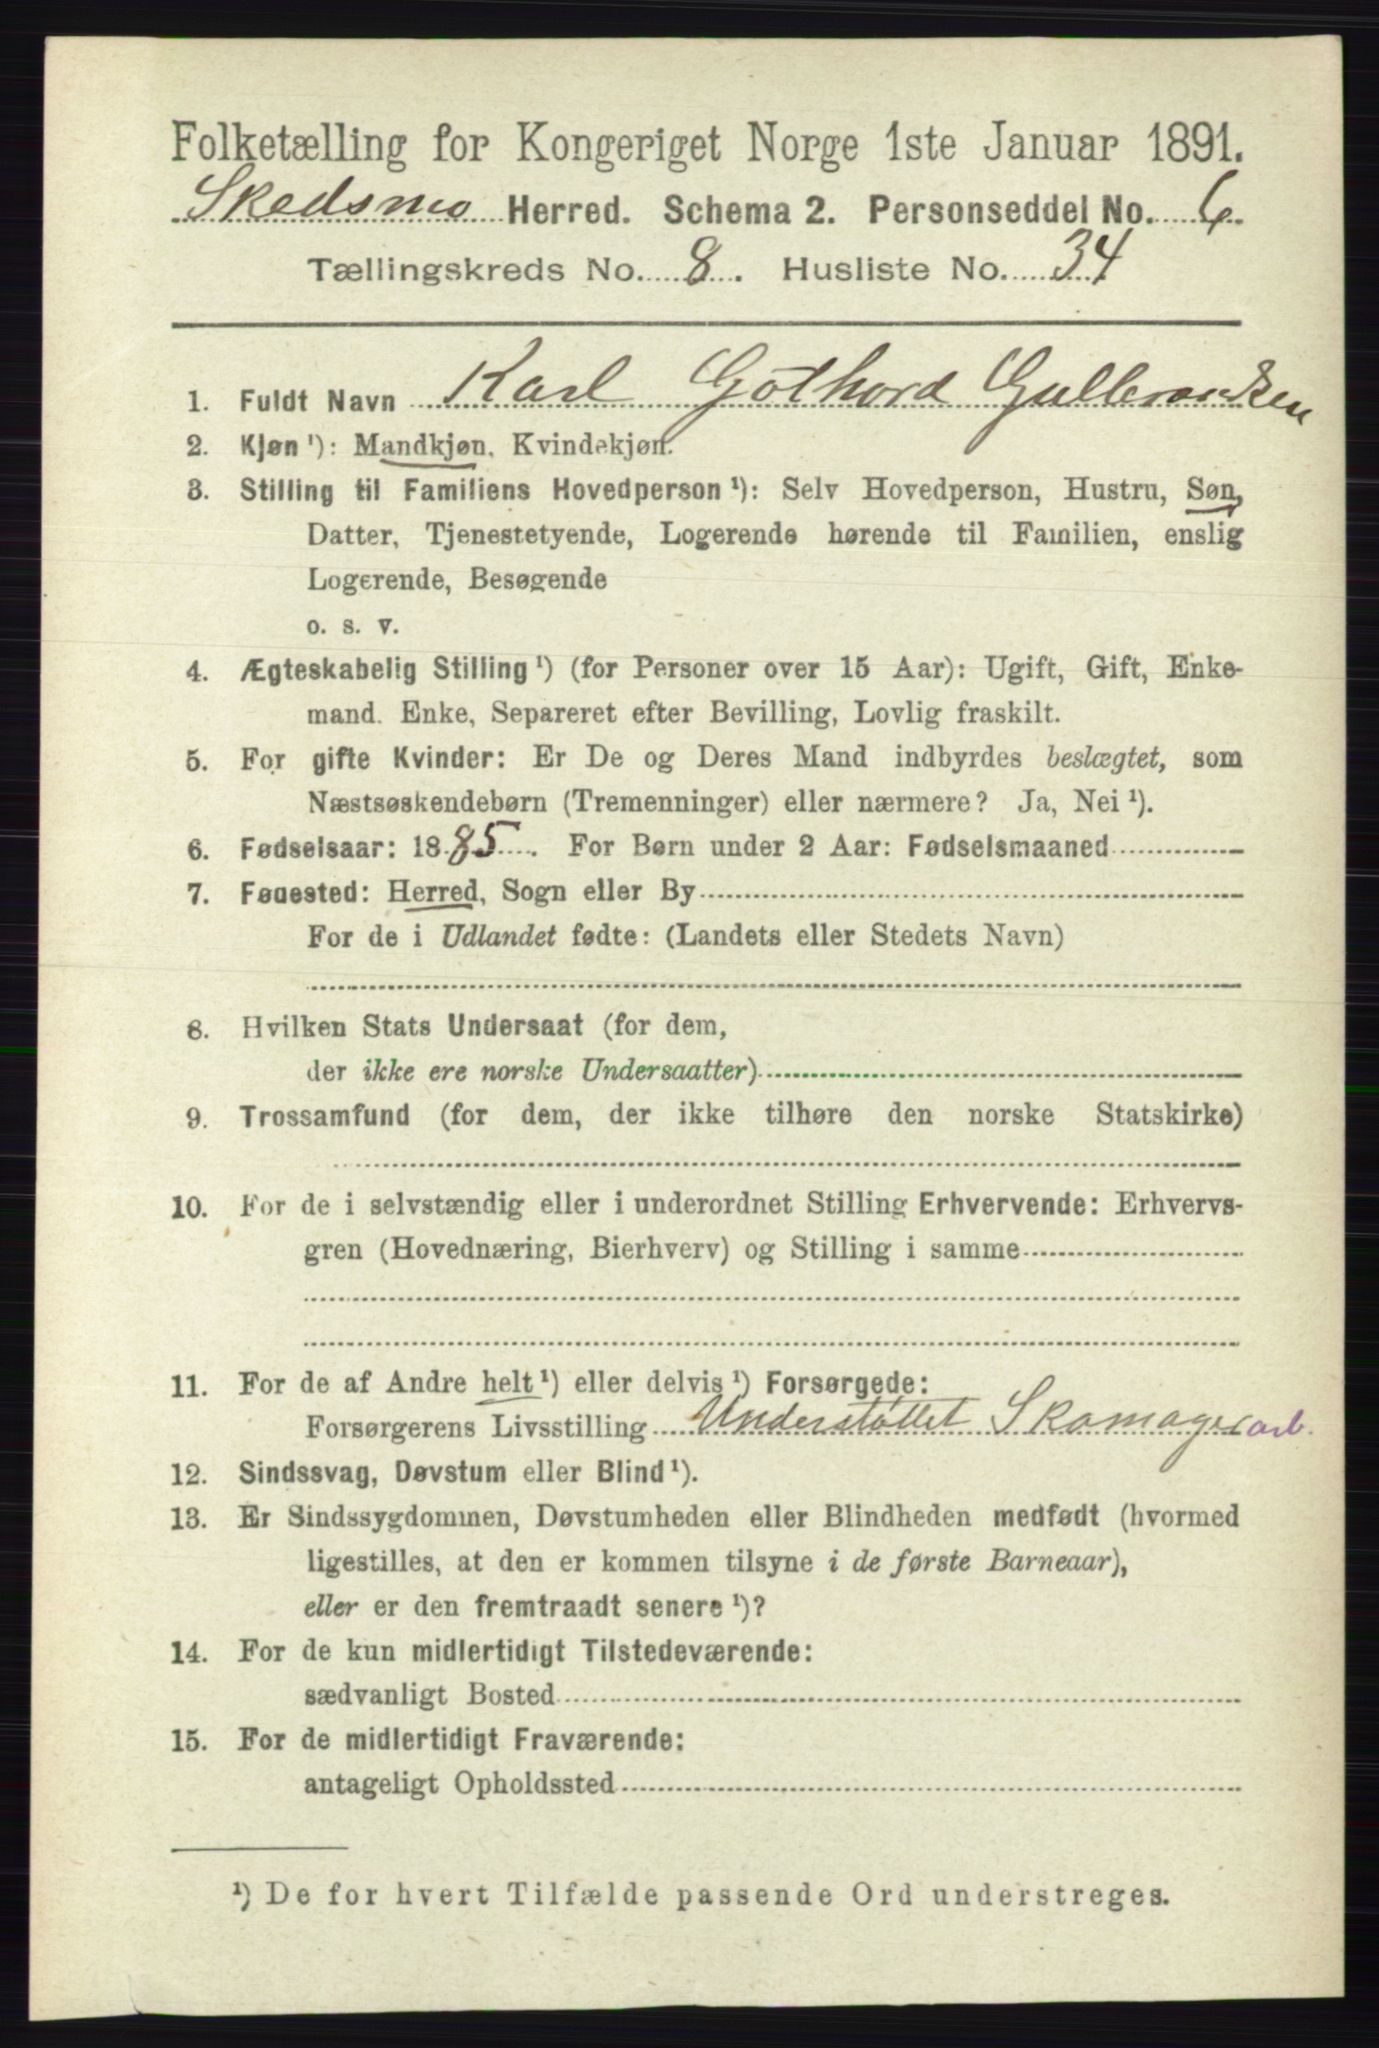 Folketælling for Kongeriget Norge 1ste Januar 1891.
Skedsmo Herred. Schema 2. Personseddel No. 6.
Tællingskreds No. 8. Husliste No. 34
1. Fuldt Navn Karl Gothard Gulbransen
2. Kjøn ¹): Mandkjøn, Kvindekjøn.
3. Stilling til Familiens Hovedperson ¹): Selv Hovedperson, Hustru, Søn,
Datter, Tjenestetyende, Logerende hørende til Familien, enslig
Logerende, Besøgende
o. s. v.
4. Ægteskabelig Stilling ¹) (for Personer over 15 Aar): Ugift, Gift, Enke-
mand. Enke, Separeret efter Bevilling, Lovlig fraskilt.
5. For gifte Kvinder: Er De og Deres Mand indbyrdes beslægtet, som
Næstsøskendebørn (Tremenninger) eller nærmere? Ja, Nei ¹).
6. Fødselsaar: 1885. For Børn under 2 Aar: Fødselsmaaned
7. Fødested: Herred, Sogn eller By
For de i Udlandet fødte: (Landets eller Stedets Navn)
8. Hvilken Stats Undersaat (for dem,
der ikke ere norske Undersaatter)
9. Trossamfund (for dem, der ikke tilhøre den norske Statskirke)
10. For de i selvstændig eller i underordnet Stilling Erhvervende: Erhvervs-
gren (Hovednæring, Bierhverv) og Stilling i samme
11. For de af Andre helt ¹) eller delvis ¹) Forsørgede:
Forsørgerens Livsstilling Understøttet Skomagerarb.
12. Sindssvag, Døvstum eller Blind ¹).
13. Er Sindssygdommen, Døvstumheden eller Blindheden medfødt (hvormed
ligestilles, at den er kommen tilsyne i de første Barneaar),
eller er den fremtraadt senere ¹)?
14. For de kun midlertidigt Tilstedeværende:
sædvanligt Bosted
15. For de midlertidigt Fraværende:
antageligt Opholdssted
¹) De for hvert Tilfælde passende Ord understreges.